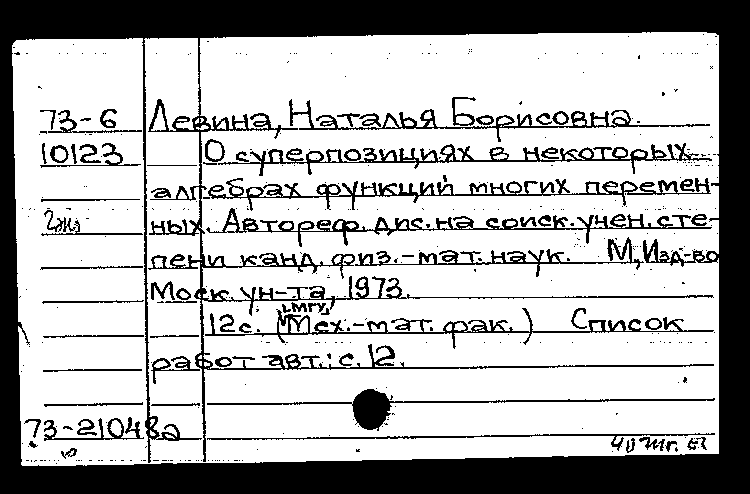 73-6 Левина, Наталья Борисовна.
10123 О суперпозициях в некоторых
алгебрах функций многих перемен-
2экз ных. Автореф. дис. на соиск. учен. сте-
пени канд. физ.-мат. наук. М, Изд-во
Моск. ун-та, 1973.
МГУ,
12с. (Мех.-мат. фак.) Список
работ авт.: с. 12.
73-21048а